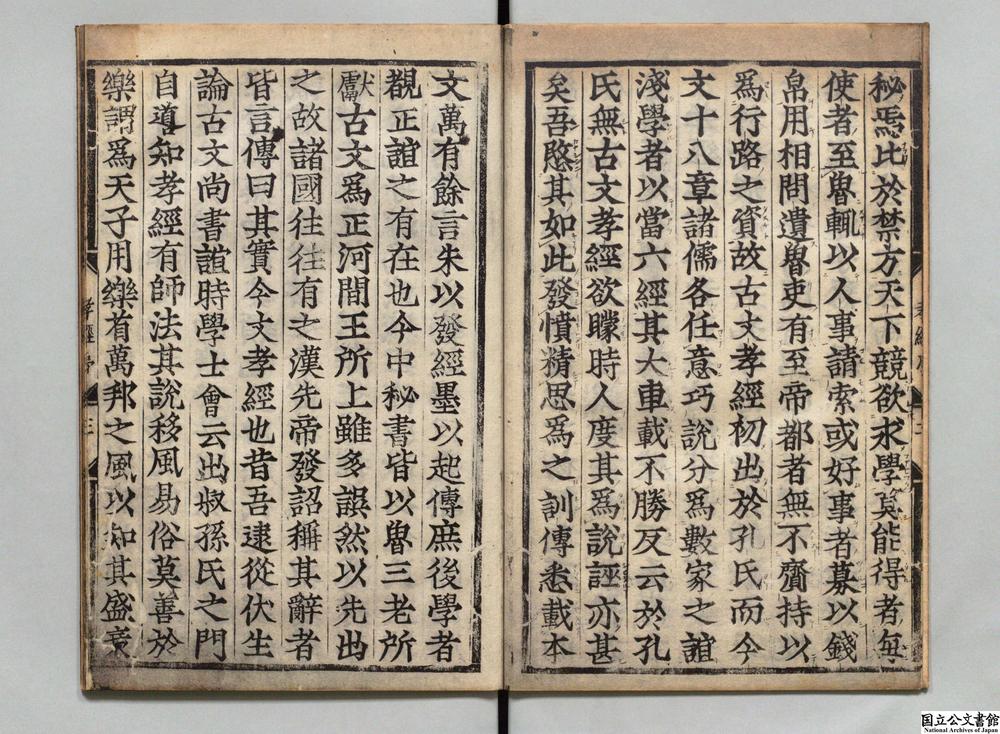 秘焉比於禁方天下競欲求學莫能得者每
使者至魯輒以人事請索或好事者募以錢
帛用相問遺魯吏有至帝都者無不齎持以
爲行路之資故古文孝經初出於孔氏而今
文十八章諸儒各任意巧說分爲數家之誼
淺學者以當六經其大車載不勝反云於孔
氏無古文孝經欲矇時人度其爲說誣亦甚
矣吾愍其如此發憤精思爲之訓傳悉載本
文萬有餘言朱以發經墨以起傳庶後學者
覩正誼之有在也今中秘書皆以魯三老所
獻古文爲正河間王所上雖多誤然以先出
之故諸國往往有之漢先帝發詔稱其辭者
皆言傳曰其實今文孝經也昔吾逮從伏生
論古文尚書誼時學士會云出叔孫氏之門
自道知孝經有師法其說移風易俗莫善於
樂謂爲天子用樂省萬邦之風以知其盛衰
孝經序
二
孝經序
三
国立公文書館
National Archives of Japan